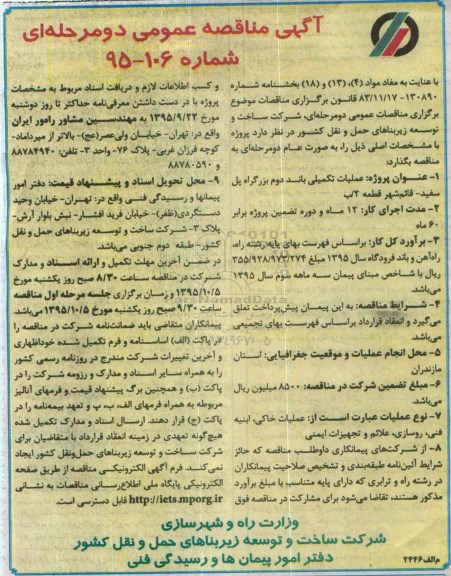 آگهی مناقصه عمومی دومرحله‌ای
شماره ۱۰۶-۹۵
با عنایت به مفاد مواد (۴)، (۱۳) و (۱۸) بخشنامه شماره
۱۳۰۸۹۰- ۸۳/۱۱/۱۷ قانون برگزاری مناقصات موضوع
برگزاری مناقصات عمومی دومرحله‌ای، شرکت ساخت و
توسعه زیربناهای حمل و نقل کشور در نظر دارد پروژه
با مشخصات اصلی ذیل را، به صورت عام دومرحله‌ای به
مناقصه بگذارد:
۱- عنوان پروژه: عملیات تکمیلی باند دوم بزرگراه پل
سفید- قائم‌شهر قطعه ۲/ب
۲- مدت اجرای کار: ۱۲ ماه و دوره تضمین پروژه برابر
۶۰ ماه
۳- برآورد کل کار: براساس فهرست بهای پایه رشته راه،
راه‌آهن و باند فرودگاه سال ۱۳۹۵ مبلغ ۳۵۵/۹۲۸/۹۷۳/۲۷۴
ریال با شاخص مبنای پیمان سه ماهه سوم سال ۱۳۹۵
می‌باشد.
۴- شرایط مناقصه: به این پیمان پیش‌پرداخت تعلق
می‌گیرد و انعقاد قرارداد براساس فهرست بهای تجمیعی
می‌باشد.
۵- محل انجام عملیات و موقعیت جغرافیایی: استان
مازندران
۶- مبلغ تضمین شرکت در مناقصه: ۸۵۰۰ میلیون ریال
می‌باشد.
۷- نوع عملیات عبارت است از: عملیات خاکی، ابنیه
فنی، روسازی، علائم و تجهیزات ایمنی
۸- از شرکت‌های پیمانکاری داوطلب مناقصه که حائز
شرایط آئین‌نامه طبقه‌بندی و تشخیص صلاحیت پیمانکاران
در رشته راه و ترابری که دارای پایه متناسب با مبلغ برآورد
مذکور هستند، تقاضا می‌شود برای مشارکت در مناقصه فوق
و کسب اطلاعات لازم و دریافت اسناد مربوط به مشخصات
پروژه با در دست داشتن معرفی‌نامه حداکثر تا روز دوشنبه
مورخ ۱۳۹۵/۹/۲۲ به مهندسین مشاور راه‌ور ایران
واقع در: تهران- خیابان ولی‌عصر(عج)- بالاتر از میرداماد-
کوچه فرزان غربی- پلاک ۷۶- واحد ۳- تلفن: ۸۸۷۸۴۹۴۰
و ۸۸۷۸۰۵۹۰
۹- محل تحویل اسناد و پیشنهاد قیمت: دفتر امور
پیمانها و رسیدگی فنی واقع در: تهران- خیابان وحید
دستگردی(ظفر)- خیابان فرید افشار- نبش بلوار آرش-
پلاک ۳- شرکت ساخت و توسعه زیربناهای حمل و نقل
کشور- طبقه دوم جنوبی می‌باشد.
در ضمن آخرین مهلت تکمیل و ارائه اسناد و مدارک
شرکت در مناقصه ساعت ۸/۳۰ صبح روز یکشنبه مورخ
۱۳۹۵/۱۰/۵ و زمان برگزاری جلسه مرحله اول مناقصه
ساعت ۹/۳۰ صبح روز یکشنبه مورخ ۱۳۹۵/۱۰/۵ می‌باشد.
پیمانکاران متقاضی باید ضمانت‌نامه شرکت در مناقصه را
در پاکت (الف) اساسنامه و فرم تکمیل شده خوداظهاری
و آخرین تغییرات شرکت مندرج در روزنامه رسمی کشور
را به همراه سایر اسناد و مدارک و رزومه شرکت را در
پاکت (ب) و همچنین برگ پیشنهاد قیمت و فرمهای آنالیز
مربوطه به همراه فرمهای الف، ب، پ و تعهد بیمه‌نامه را در
پاکت (ج) قرار دهند. ارسال اسناد و مدارک تکمیل شده
هیچگونه تعهدی در زمینه انعقاد قرارداد با متقاضیان برای
شرکت ساخت و توسعه زیربناهای حمل‌ونقل کشور ایجاد
نمی کند. فرم آگهی الکترونیکی مناقصه از طریق صفحه
الکترونیکی پایگاه ملی اطلاع‌رسانی مناقصات به نشانی
http://iets.mporg.ir قابل دسترسی است.
وزارت راه و شهرسازی
شرکت ساخت و توسعه زیربناهای حمل و نقل کشور
دفتر امور پیمان ها و رسیدگی فنی
م‌الف۲۴۴۶